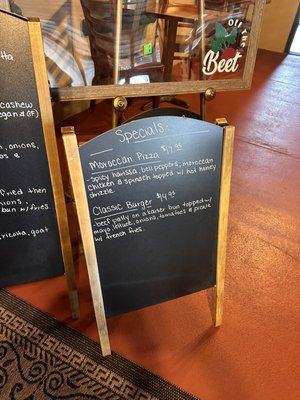 Off the
Beet
tta
cashew
egan & GF)
onions,
ns &
fried then
onions,
bun w/ fries.
ricotta, goat
Specials
Moroccan Pizza $17.95
-spicy harissa, bell peppers, moroccan
chicken & spinach topped w/ hot honey
drizzle.
Classic Burger $14.95
-beef patty on a kaiser bun topped w/
mayo, lettuce, onions, tomatoes & pickle
w/ french fries.